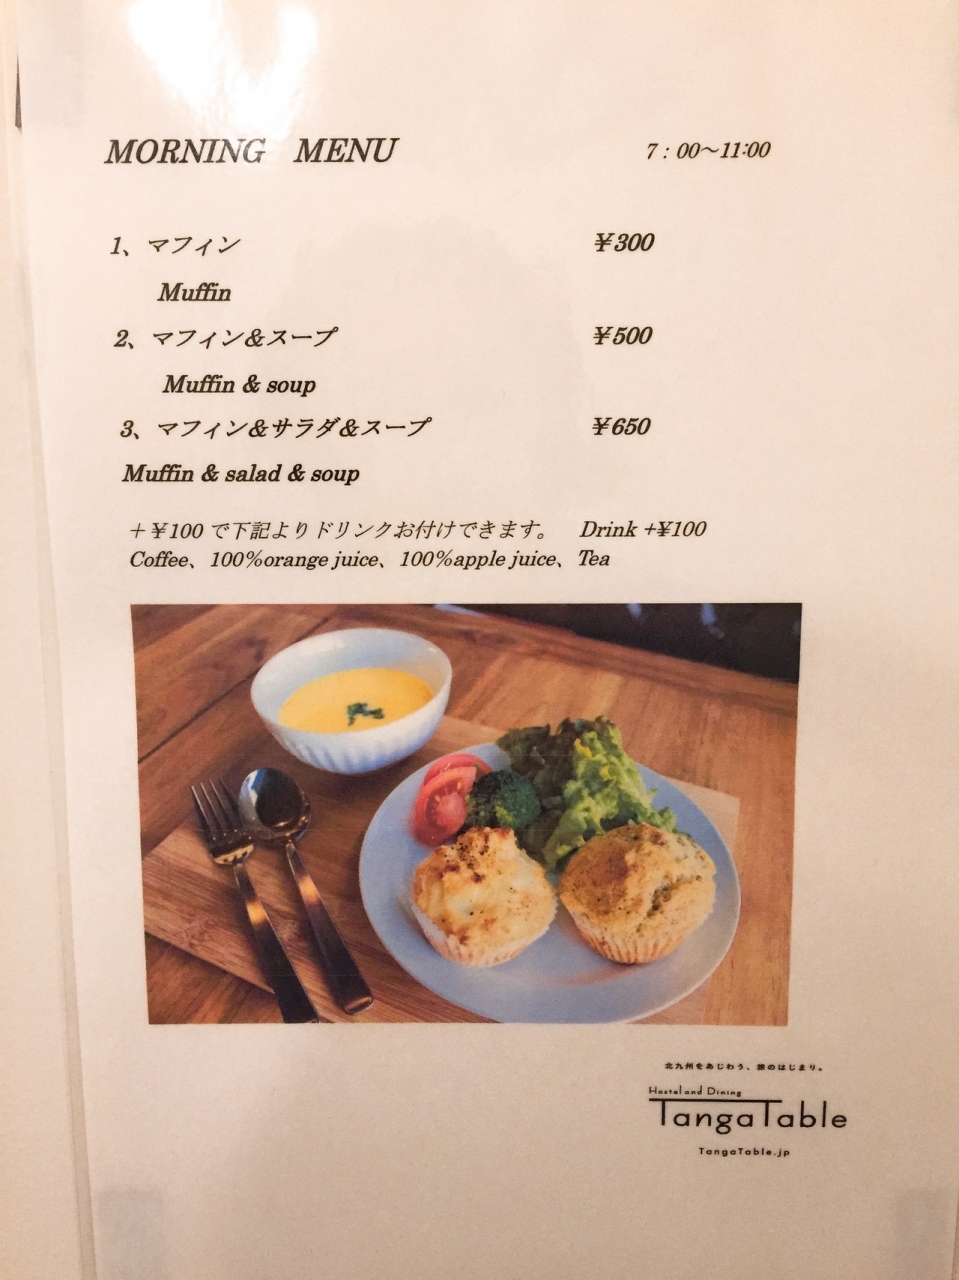 MORNING MENU 7：00～11:00
1、マフィン ¥300
Muffin
2、マフィン&スープ ¥500
Muffin & soup
3、マフィン&サラダ&スープ ¥650
Muffin & salad & soup
＋¥100 で下記よりドリンクお付けできます。 Drink +¥100
Coffee、100%orange juice、100%apple juice、Tea
北九州をあじわう、旅のはじまり。
Hostel and Dining
TangaTable
TangaTable.jp